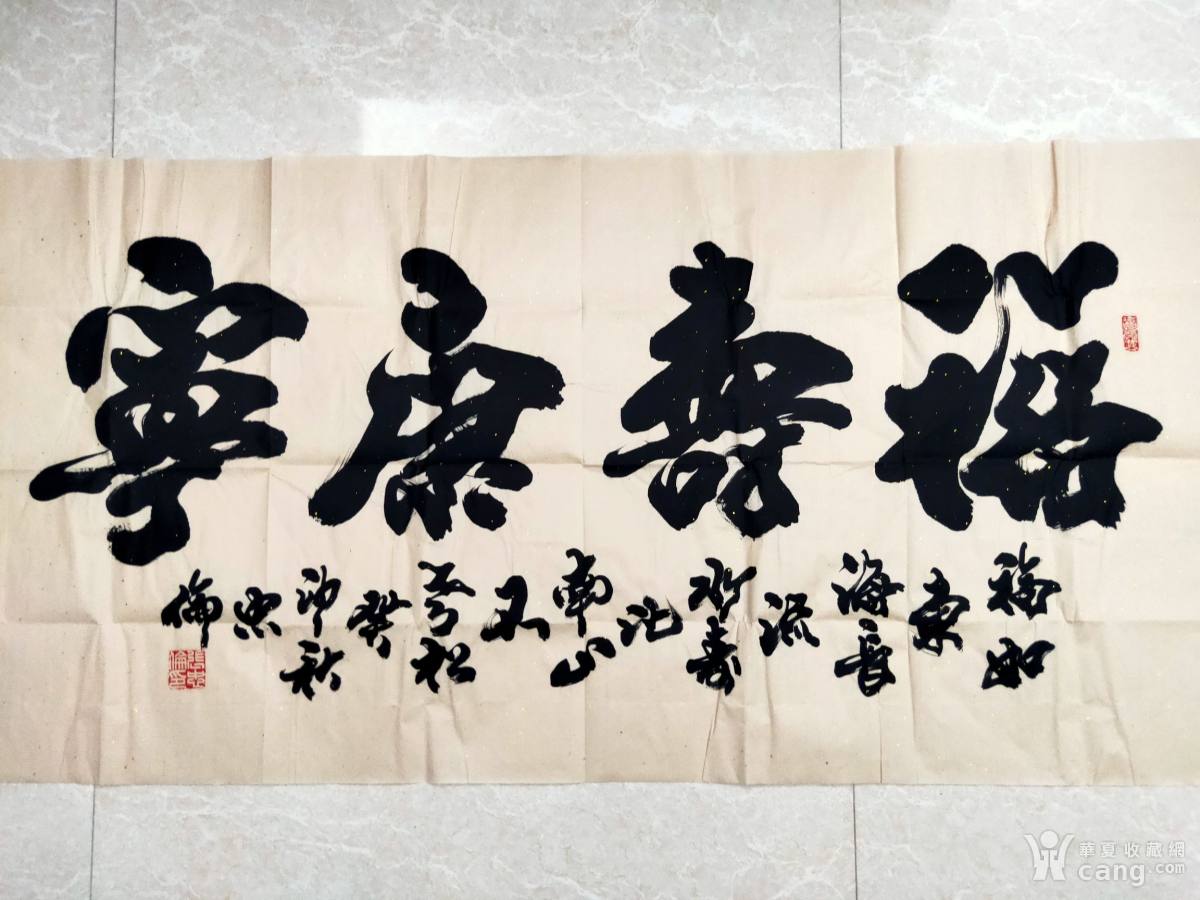 福壽康寧
福如
東
海長
流
水壽
比
南山
不
老松
癸
卯秋
忠
倫
張忠倫印
華夏收藏網
cang.com